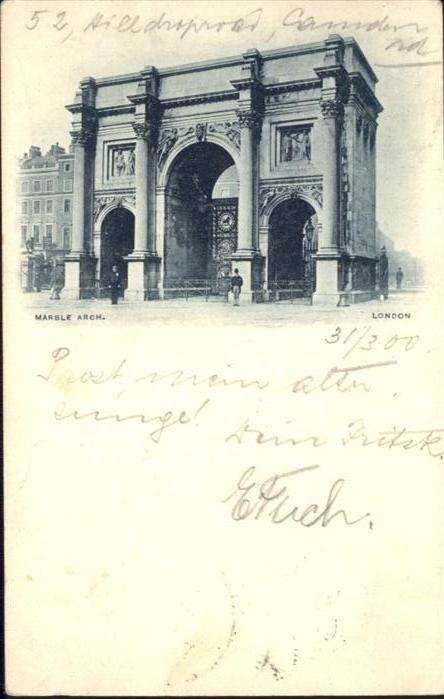 52, Hilldroproad, Camden
rd
MARBLE ARCH. LONDON
31/3 00.
Prost, mein alter
Junge!
Dein Fritzk